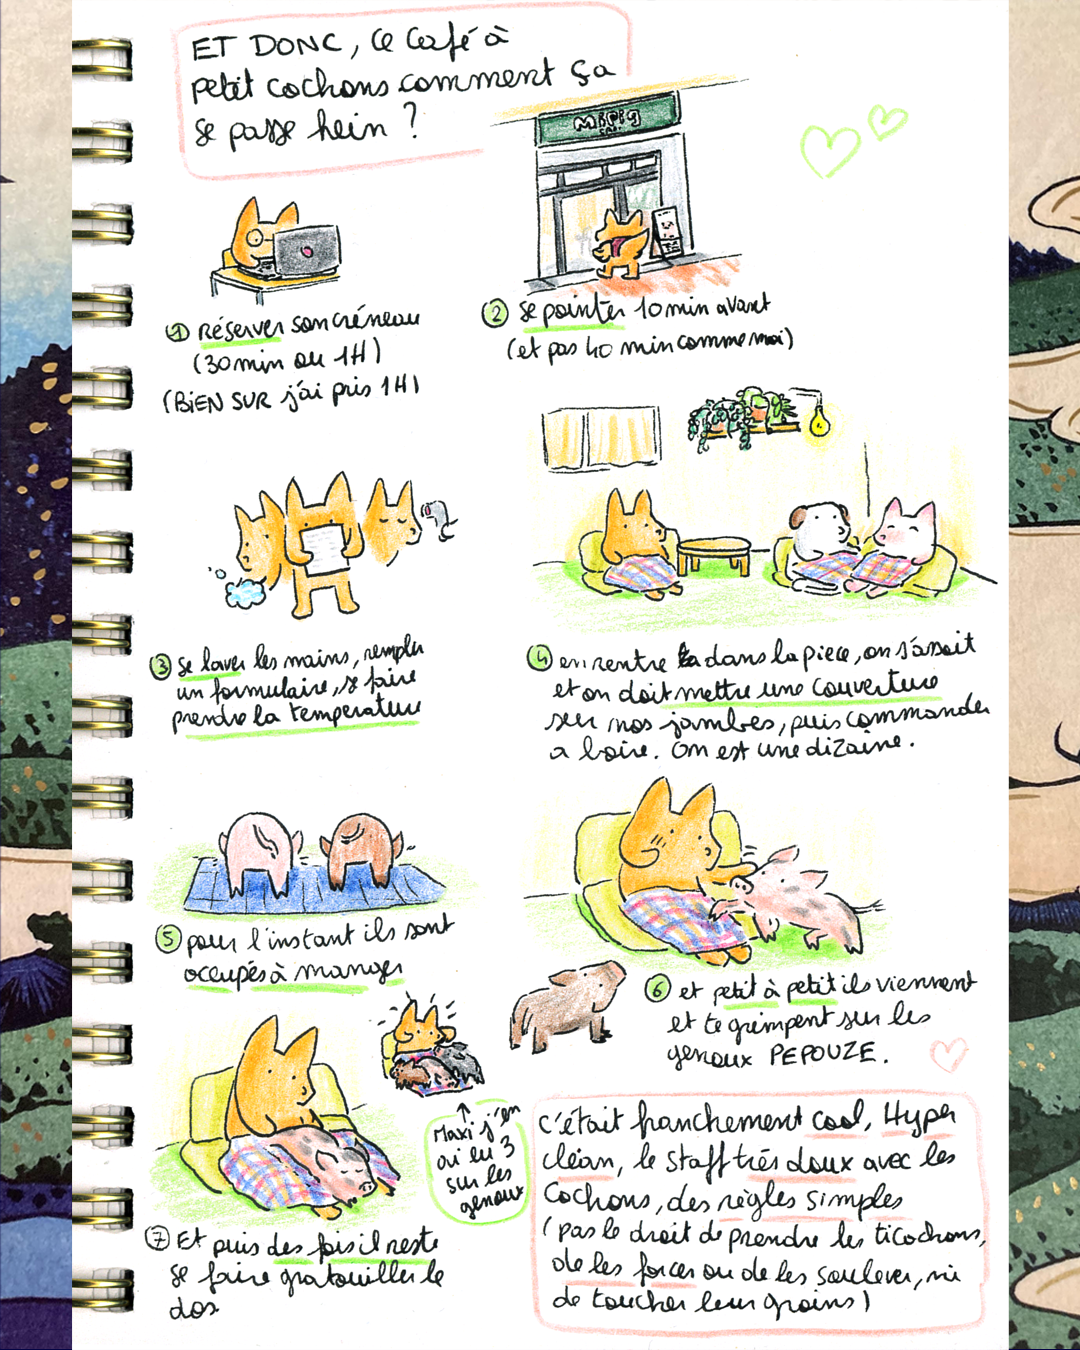 ET DONC, ce café à
petit cochons comment ça
se passe hein ?
MIPIG
CAFE
① réserver son créneau
(30min ou 1H)
(BIEN SUR j'ai pris 1H)
② se pointer 10 min avant
(et pas 40 min comme moi)
③ se laver les mains, remplir
un formulaire, se faire
prendre la température
④ on rentre dans la piece, on s'assoit
et on doit mettre une couverture
sur nos jambes, puis commander
a boire. On est une dizaine.
⑤ pour l'instant ils sont
occupés à manger
⑥ et petit à petit ils viennent
et te grimpent sur les
genoux PEPOUZE.
Maxi j'en
ai eu 3
sur les
genoux
⑦ Et puis des fois il reste
se faire gratouiller le
dos
c'était franchement cool, Hyper
clean, le staff très doux avec les
cochons, des règles simples
(pas le droit de prendre les ticochons,
de les forcer ou de les soulever, ni
de toucher leur groins)